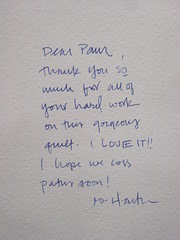 Dear Paul,
Thank you so
much for all of
your hard work
on this gorgeous
quilt. I LOVE IT!!
I hope we cross
paths soon!